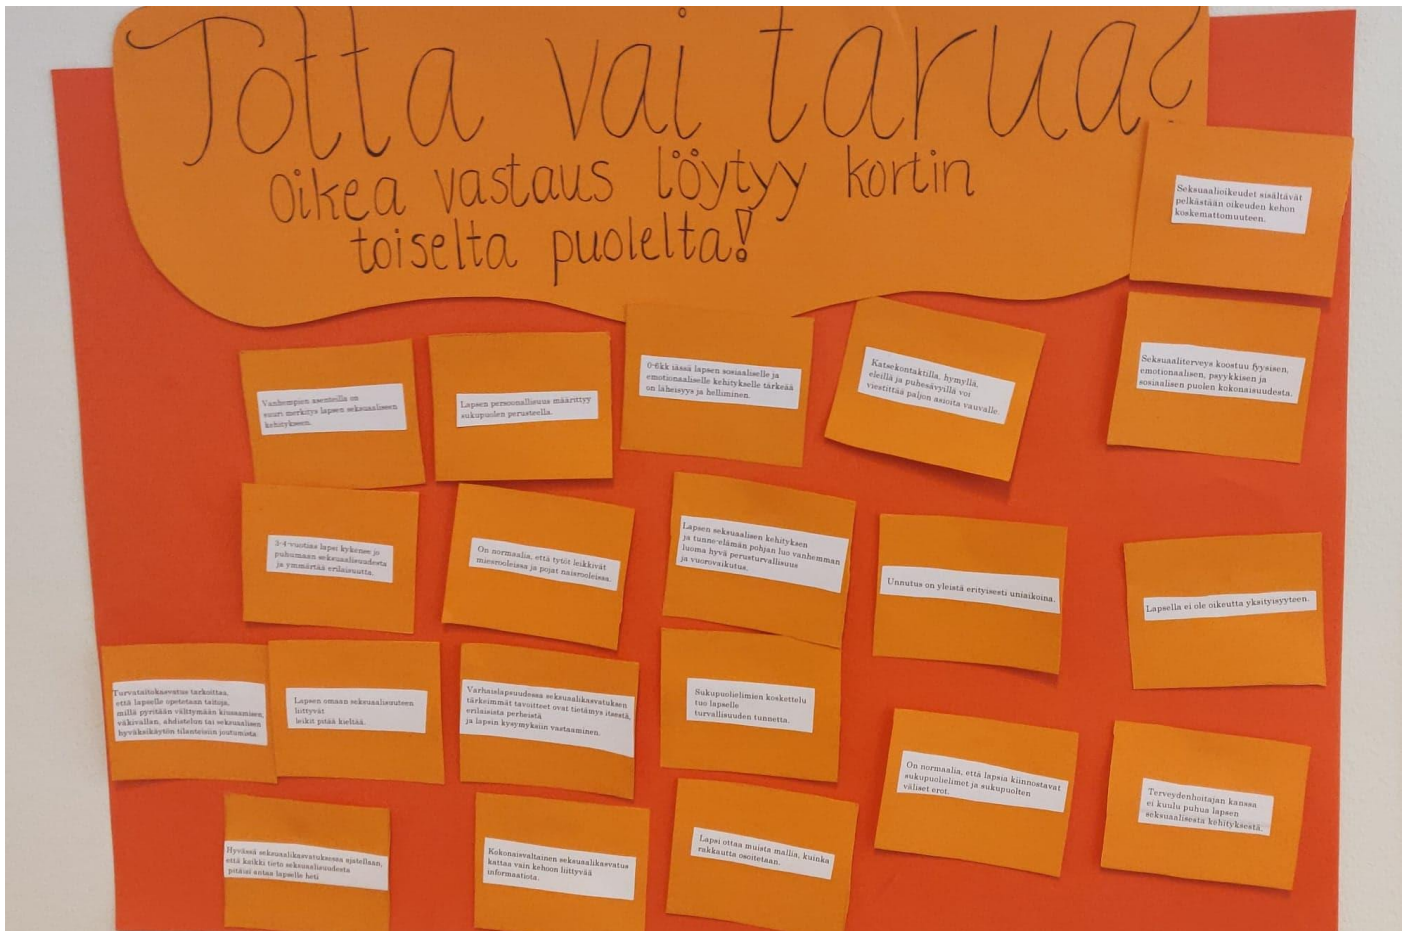 Totta vai tarua?
Oikea vastaus löytyy kortin
toiselta puolelta!
Seksuaalioikeudet sisältävät
pelkästään oikeuden kehon
koskemattomuuteen.
Vanhempien asenteilla on
suuri merkitys lapsen seksuaaliseen
kehitykseen.
Lapsen persoonallisuus määrittyy
sukupuolen perusteella.
0-6kk iässä lapsen sosiaaliselle ja
emotionaaliselle kehitykselle tärkeää
on läheisyys ja helliminen.
Katsekontaktilla, hymyllä,
eleillä ja puhesävyillä voi
viestittää paljon asioita vauvalle.
Seksuaaliterveys koostuu fyysisen,
emotionaalisen, psyykkisen ja
sosiaalisen puolen kokonaisuudesta.
3-4-vuotias lapsi kykenee jo
puhumaan seksuaalisuudesta
ja ymmärtää erilaisuutta.
On normaalia, että tytöt leikkivät
miesrooleissa ja pojat naisrooleissa.
Lapsen seksuaalisen kehityksen
ja tunne-elämän pohjan luo vanhemman
luoma hyvä perusturvallisuus
ja vuorovaikutus.
Unnutus on yleistä erityisesti uniaikoina.
Lapsella ei ole oikeutta yksityisyyteen.
Turvataitokasvatus tarkoittaa,
että lapselle opetetaan taitoja,
millä pyritään välttymään kiusaamisen,
väkivallan, ahdistelun tai seksuaalisen
hyväksikäytön tilanteisiin joutumista.
Lapsen omaan seksuaalisuuteen
liittyvät
leikit pitää kieltää.
Varhaislapsuudessa seksuaalikasvatuksen
tärkeimmät tavoitteet ovat tietämys itsestä,
erilaisista perheistä
ja lapsin kysymyksiin vastaaminen.
Sukupuolielimien koskettelu
tuo lapselle
turvallisuuden tunnetta.
On normaalia, että lapsia kiinnostavat
sukupuolielimet ja sukupuolten
väliset erot.
Terveydenhoitajan kanssa
ei kuulu puhua lapsen
seksuaalisesta kehityksestä.
Hyvässä seksuaalikasvatuksessa ajatellaan,
että kaikki tieto seksuaalisuudesta
pitäisi antaa lapselle heti
Kokonaisvaltainen seksuaalikasvatus
kattaa vain kehoon liittyvää
informaatiota.
Lapsi ottaa muista mallia, kuinka
rakkautta osoitetaan.